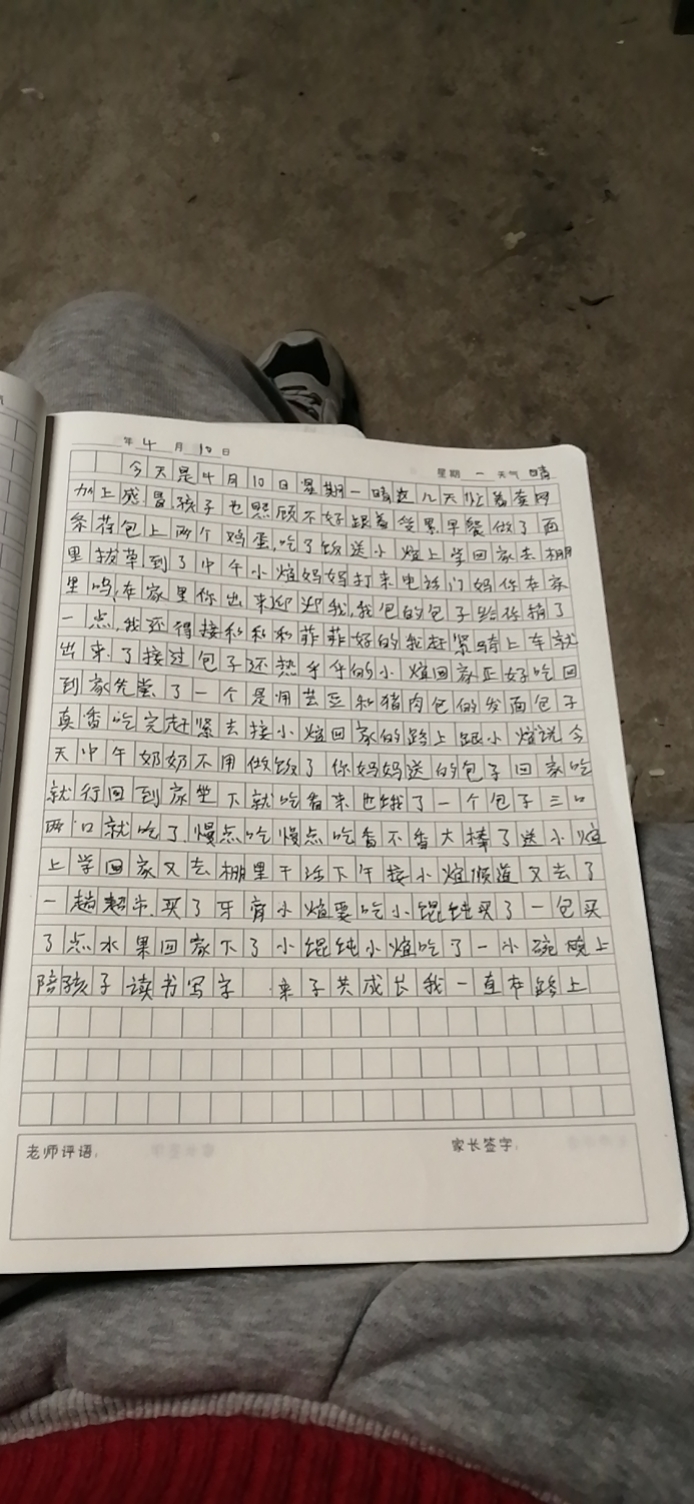 年 4 月 10 日
星期 一 天气 晴
今天是4月10日星期一晴这几天忙着卖网
加上感冒孩子也照顾不好跟着受累早餐做了西
条荷包上两个鸡蛋,吃了饭送小煊上学回家去棚
里拔草到了中午小煊妈妈打来电话门妈你在家
里吗,在家里你出来迎迎我,我包的包子给你捎了
一点,我还得接和和和菲菲好的我赶紧骑上车就
出来了接过包子还热乎乎的小煊回家正好吃回
到家先尝了一个是用芸豆和猪肉包的发面包子
真香吃完赶紧去接小煊回家的路上跟小煊说今
天中午奶奶不用做饭了你妈妈送的包子回家吃
就行回到家坐下就吃看来也饿了一个包子三口
两口就吃了,慢点吃慢点吃香不香太棒了送小煊
上学回家又去棚里干活下午接小煊顺道又去了
一趟超市,买了牙膏小煊要吃小馄饨买了一包买
了点水果回家下了小馄饨小煊吃了一小碗晚上
陪孩子读书写字 亲子共成长我一直在路上
老师评语:
家长签字: